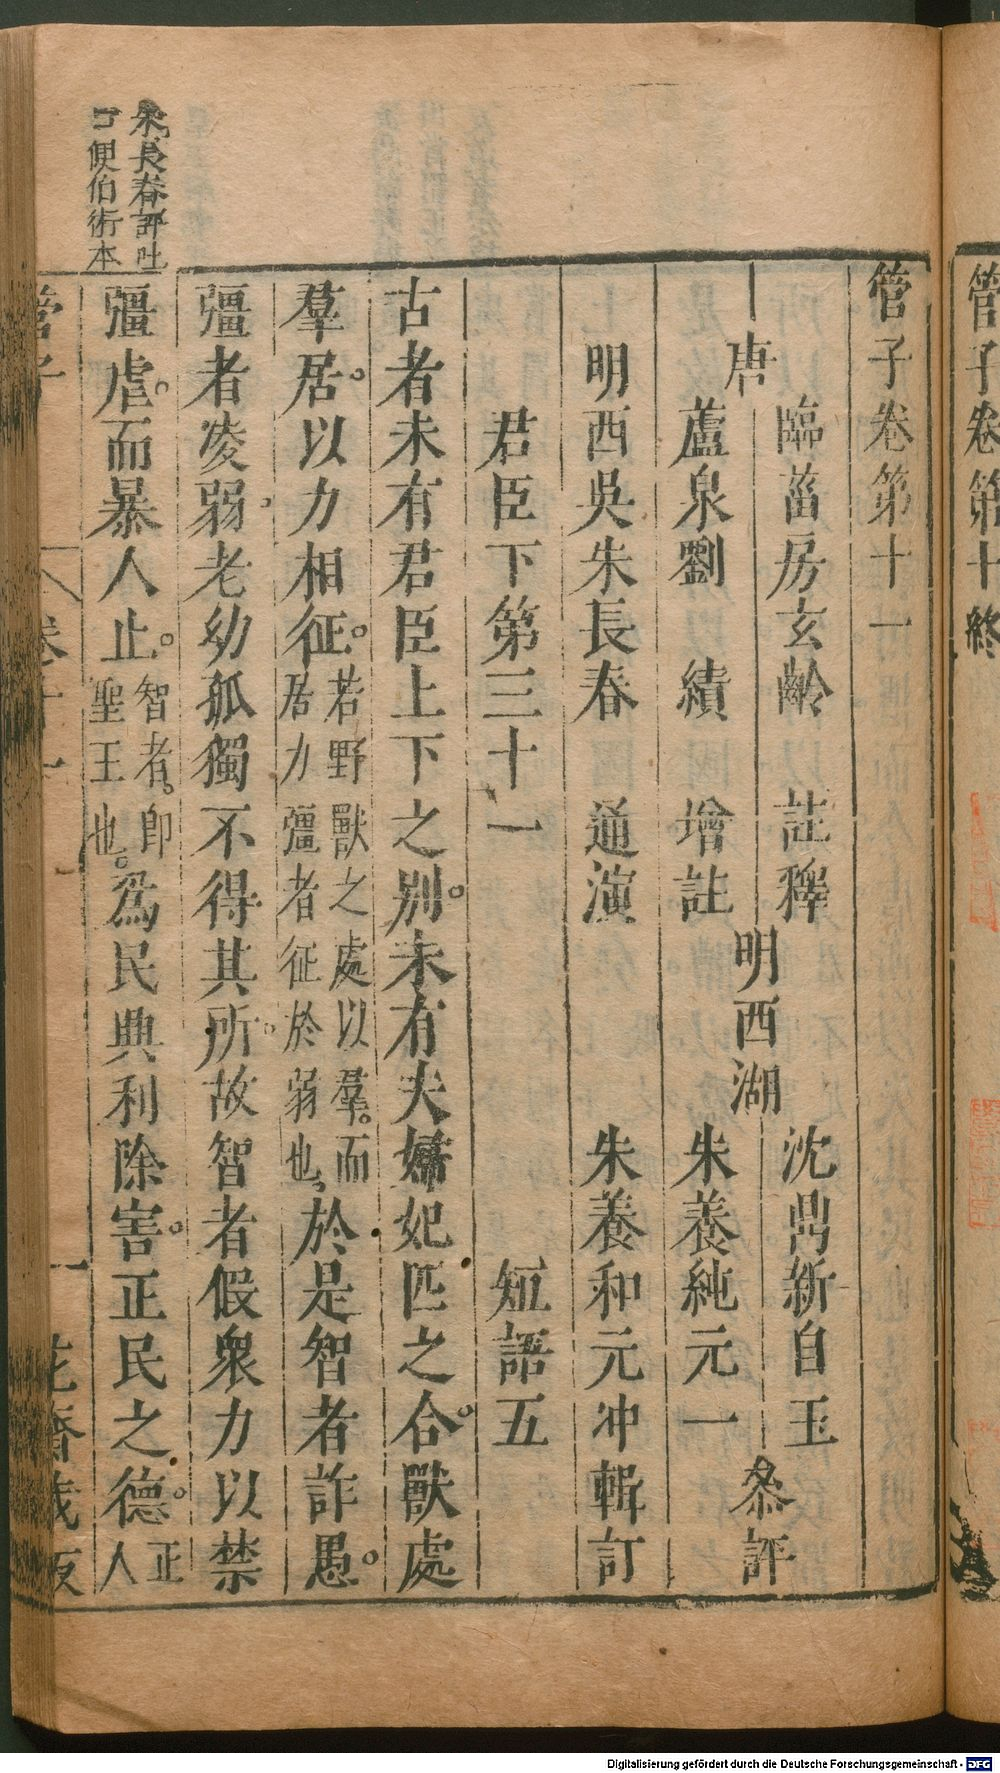 管子卷第十終
管子卷第十一
唐
臨菑房玄齡註釋
蘆泉劉績增註
明西湖
沈鼎新自玉
朱養純元一
叅評
明西吳朱長春通演
朱養和元冲輯訂
君臣下第三十一 短語五
古者未有君臣上下之别。未有夫婦妃匹之合。獸處
羣居。以力相征。若野獸之處以羣。而居力彊者征於弱也。於是智者詐愚。
彊者凌弱。老幼孤獨不得其所。故智者假衆力以禁
彊虐。而暴人止。智者。卽聖王也。爲民興利除害。正民之德。正人
朱長春評吐
口便伯術本
管子
卷十一
一
花齋藏板
Digitalisierung gefördert durch die Deutsche Forschungsgemeinschaft - DFG